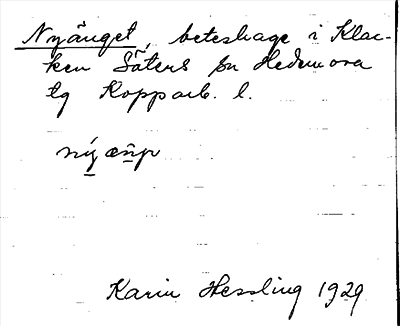 Nyänget, beteshage i Klac-
ken Säters sn Hedemora
tg Kopparb. l.
nýæŋ
Karin Hessling 1929